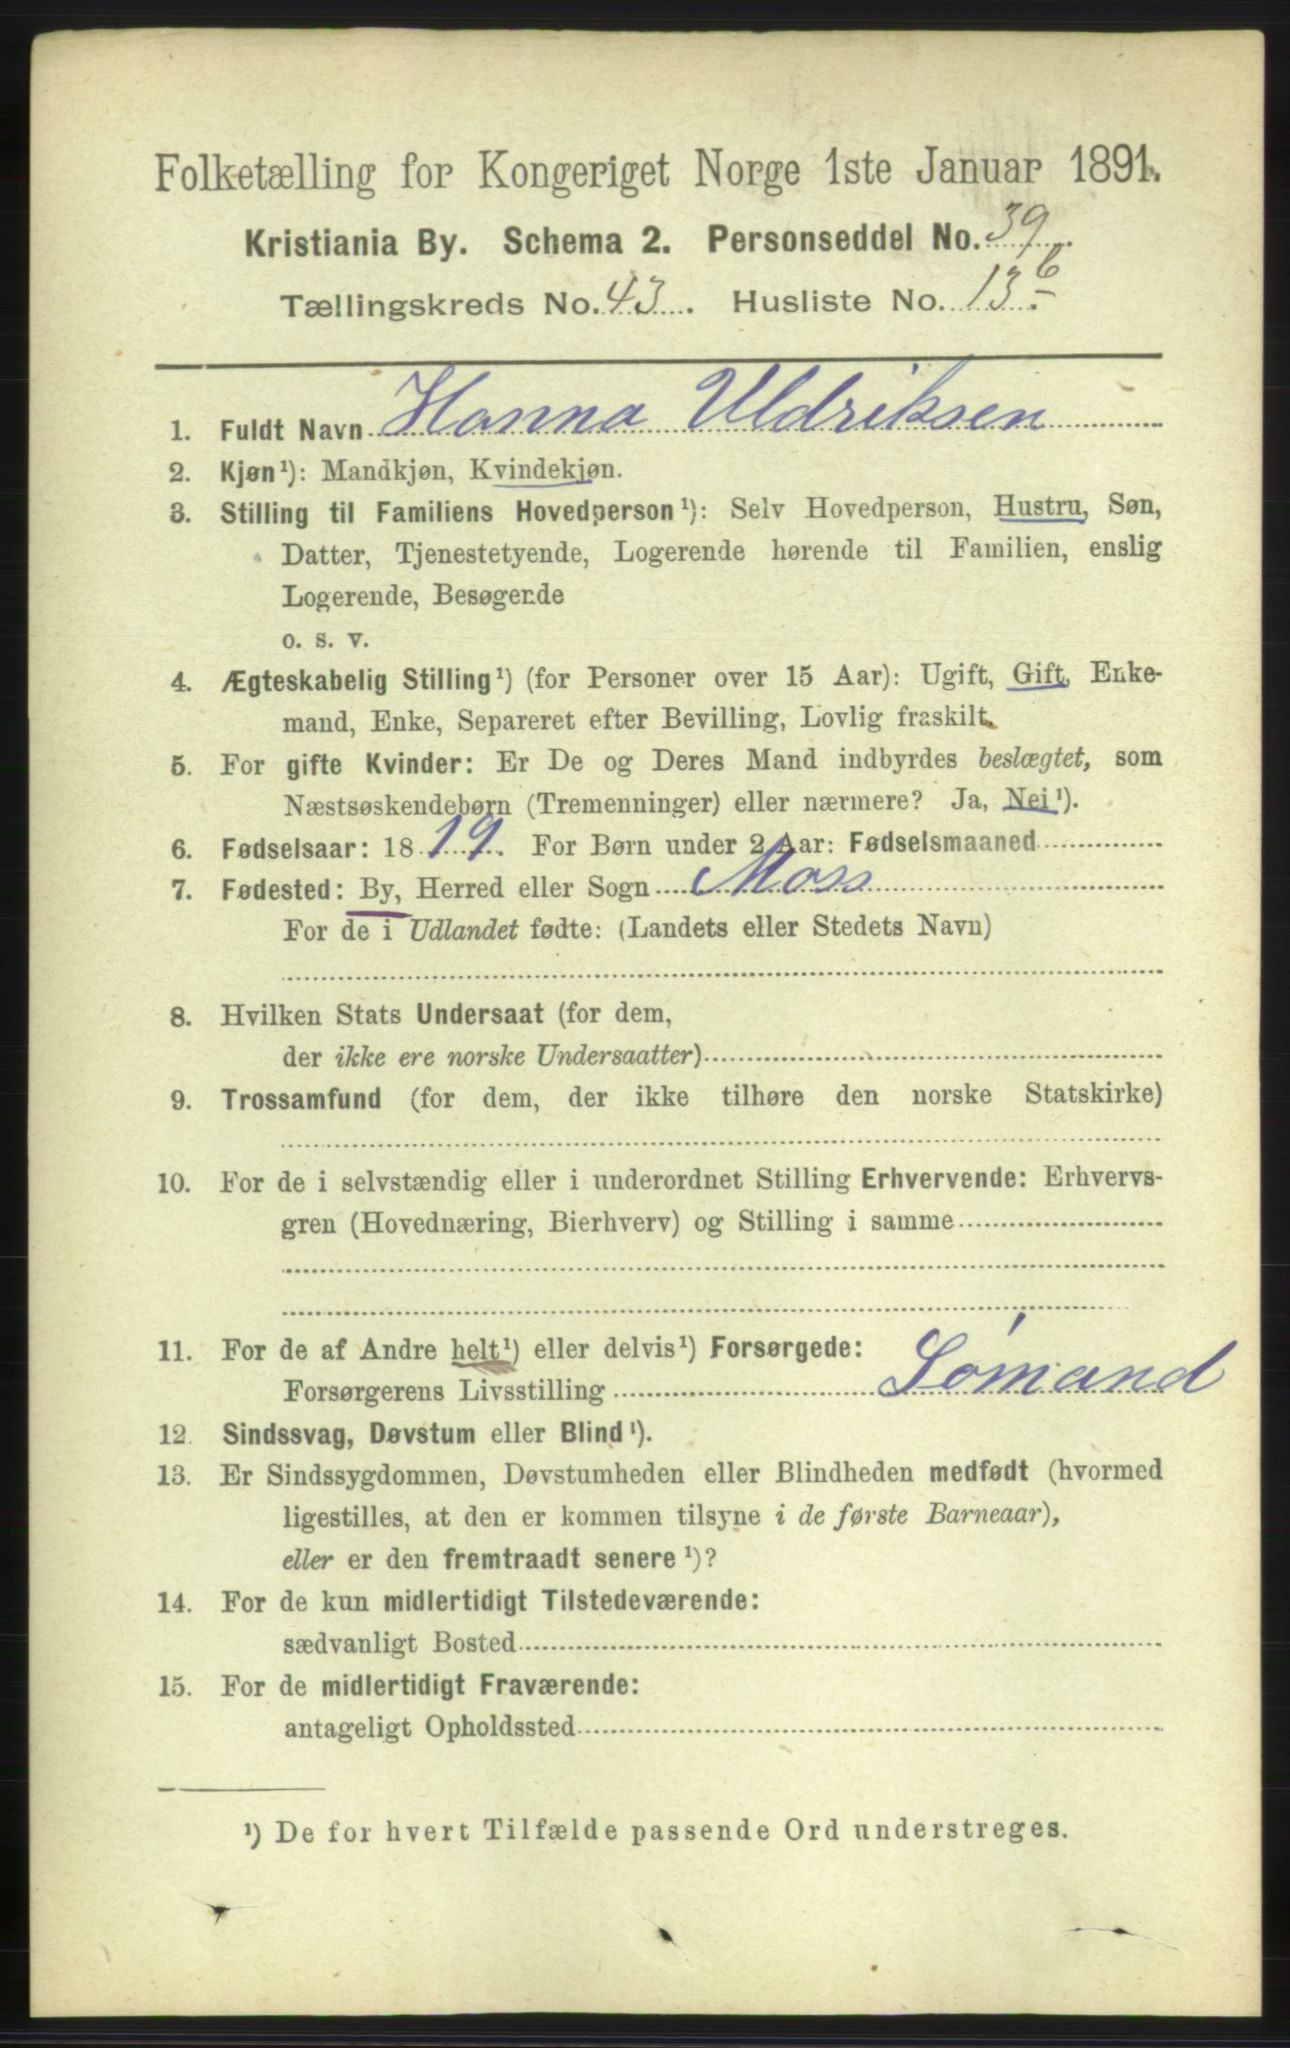 Folketælling for Kongeriget Norge 1ste Januar 1891.
Kristiania By. Schema 2. Personseddel No. 39
Tællingskreds No. 43. Husliste No. 13 b
1. Fuldt Navn Hanna Uldriksen
2. Kjøn¹): Mandkjøn, Kvindekjøn.
3. Stilling til Familiens Hovedperson¹): Selv Hovedperson, Hustru, Søn,
Datter, Tjenestetyende, Logerende hørende til Familien, enslig
Logerende, Besøgende
o. s. v.
4. Ægteskabelig Stilling¹) (for Personer over 15 Aar): Ugift, Gift, Enke-
mand, Enke, Separeret efter Bevilling, Lovlig fraskilt.
5. For gifte Kvinder: Er De og Deres Mand indbyrdes beslægtet, som
Næstsøskendebørn (Tremenninger) eller nærmere? Ja, Nei¹).
6. Fødselsaar: 1819. For Børn under 2 Aar: Fødselsmaaned
7. Fødested: By, Herred eller Sogn Moss
For de i Udlandet fødte: (Landets eller Stedets Navn)
8. Hvilken Stats Undersaat (for dem,
der ikke ere norske Undersaatter)
9. Trossamfund (for dem, der ikke tilhøre den norske Statskirke)
10. For de i selvstændig eller i underordnet Stilling Erhvervende: Erhvervs-
gren (Hovednæring, Bierhverv) og Stilling i samme
11. For de af Andre helt¹) eller delvis¹) Forsørgede:
Forsørgerens Livsstilling Sømand
12. Sindssvag, Døvstum eller Blind¹).
13. Er Sindssygdommen, Døvstumheden eller Blindheden medfødt (hvormed
ligestilles, at den er kommen tilsyne i de første Barneaar),
eller er den fremtraadt senere¹)?
14. For de kun midlertidigt Tilstedeværende:
sædvanligt Bosted
15. For de midlertidigt Fraværende:
antageligt Opholdssted
¹) De for hvert Tilfælde passende Ord understreges.